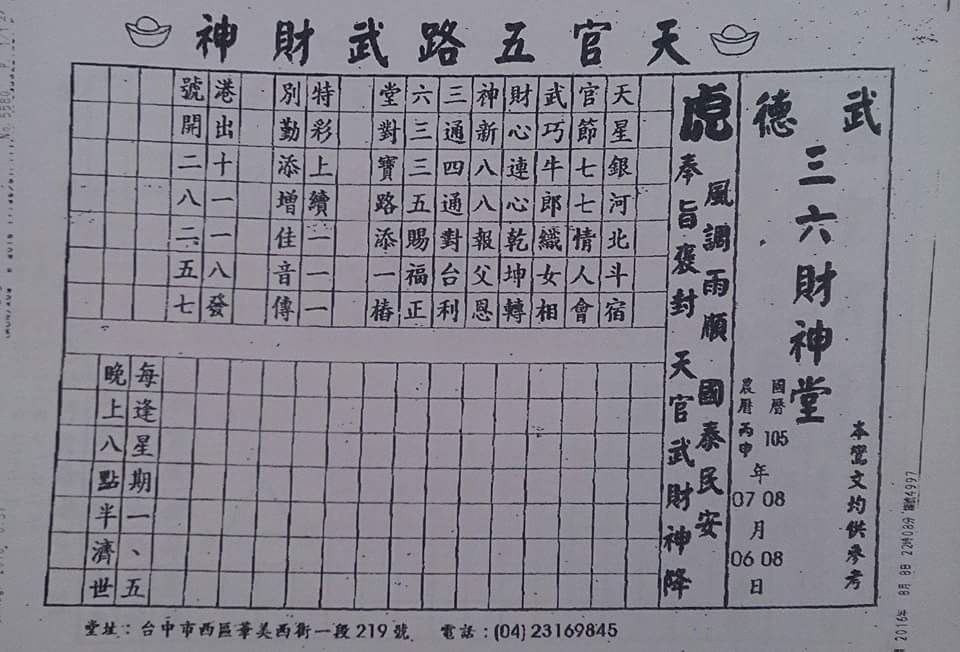 天官五路武財神
武德
三六財神堂
本鸞文均供參考
國曆 105 年 08 月 08 日
農曆丙申 年 07 月 06 日
虎
風調雨順 國泰民安
奉旨褒封 天官武財神降
天星銀河北斗宿
官節七七情人會
武巧牛郎織女相
財心連心乾坤轉
神新八八報父恩
三通四通對台利
六三三五賜福正
堂對寶路添一樁
特彩上續一一一
別勤添增佳音傳
港出十一一八發
號開二八二五七
每逢星期一、五
晚上八點半濟世
堂址：台中市西區華美西街一段219號 電話：(04) 23169845
2016年 8月 8日 22時08分
No. 5580